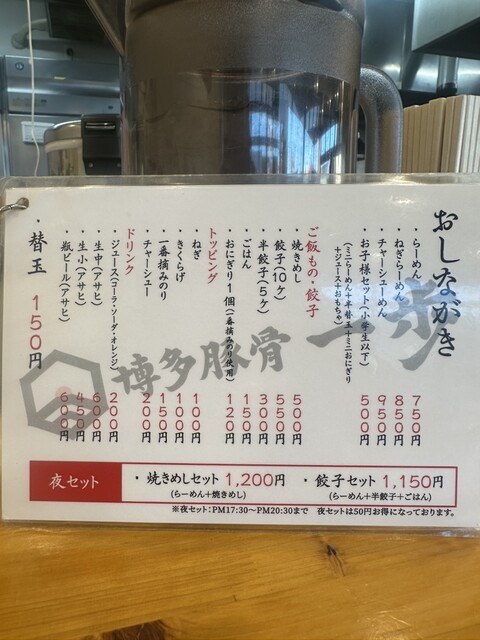 おしながき
・らーめん 750円
・ねぎらーめん 850円
・チャーシューめん 950円
・お子様セット(小学生以下) 500円
(ミニらーめん+半替玉+ミニおにぎり
+ジュース+おもちゃ)
ご飯もの・餃子
・焼きめし 500円
・餃子(10ヶ) 550円
・半餃子(5ヶ) 300円
・ごはん 150円
・おにぎり1個(一番摘みのり使用) 120円
トッピング
・ねぎ 100円
・きくらげ 100円
・一番摘みのり 150円
・チャーシュー 200円
ドリンク
・ジュース(コーラ・ソーダ・オレンジ) 200円
・生中(アサヒ) 600円
・生小(アサヒ) 450円
・瓶ビール(アサヒ) 600円
・替玉 150円
博多豚骨 一歩
夜セット
・焼きめしセット 1,200円
(らーめん+焼きめし)
・餃子セット 1,150円
(らーめん+半餃子+ごはん)
※夜セット:PM17:30〜PM20:30まで 夜セットは50円お得になっております。